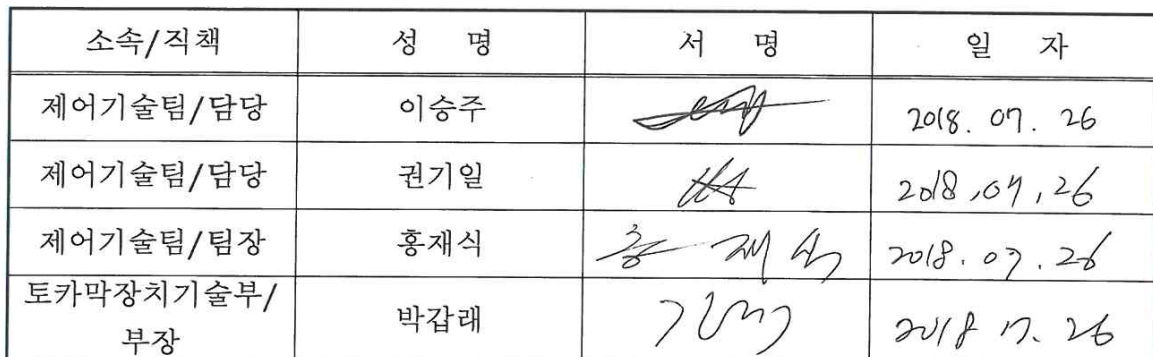 소속/직책 성 명 서 명 일 자
제어기술팀/담당 이승주 2018. 07. 26
제어기술팀/담당 권기일 2018, 07, 26
제어기술팀/팀장 홍재식 홍 재 식 2018. 07. 26
토카막장치기술부/
부장 박갑래 2018 7. 26